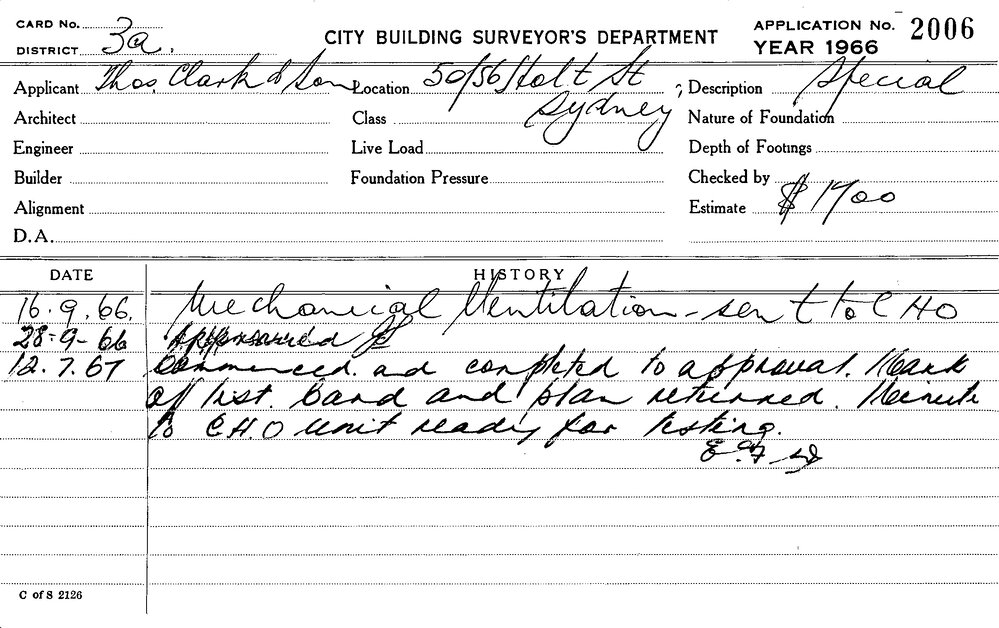 CARD No.
DISTRICT 3a.
CITY BUILDING SURVEYOR'S DEPARTMENT
APPLICATION No. 2006
YEAR 1966
Applicant Thos. Clark & Son Location 50/56 Holt St Description Special
Architect Class Sydney Nature of Foundation
Engineer Live Load Depth of Footings
Builder Foundation Pressure Checked by
Alignment Estimate $1700
D.A.
DATE HISTORY
16.9.66. Mechanical Ventilation - sent to CHO
28-9-66 Approved
12.7.67 Commenced and completed to approval. Mark
off list. Card and plan returned. Minute
to C.H.O unit ready for testing.
C of S 2126